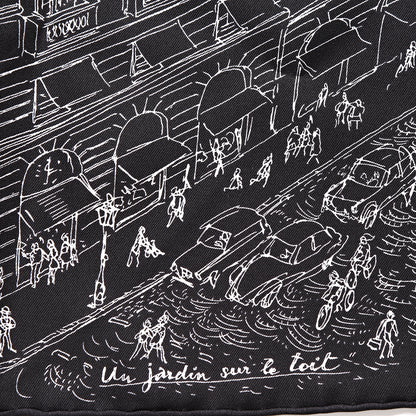 Un jardin sur le toit